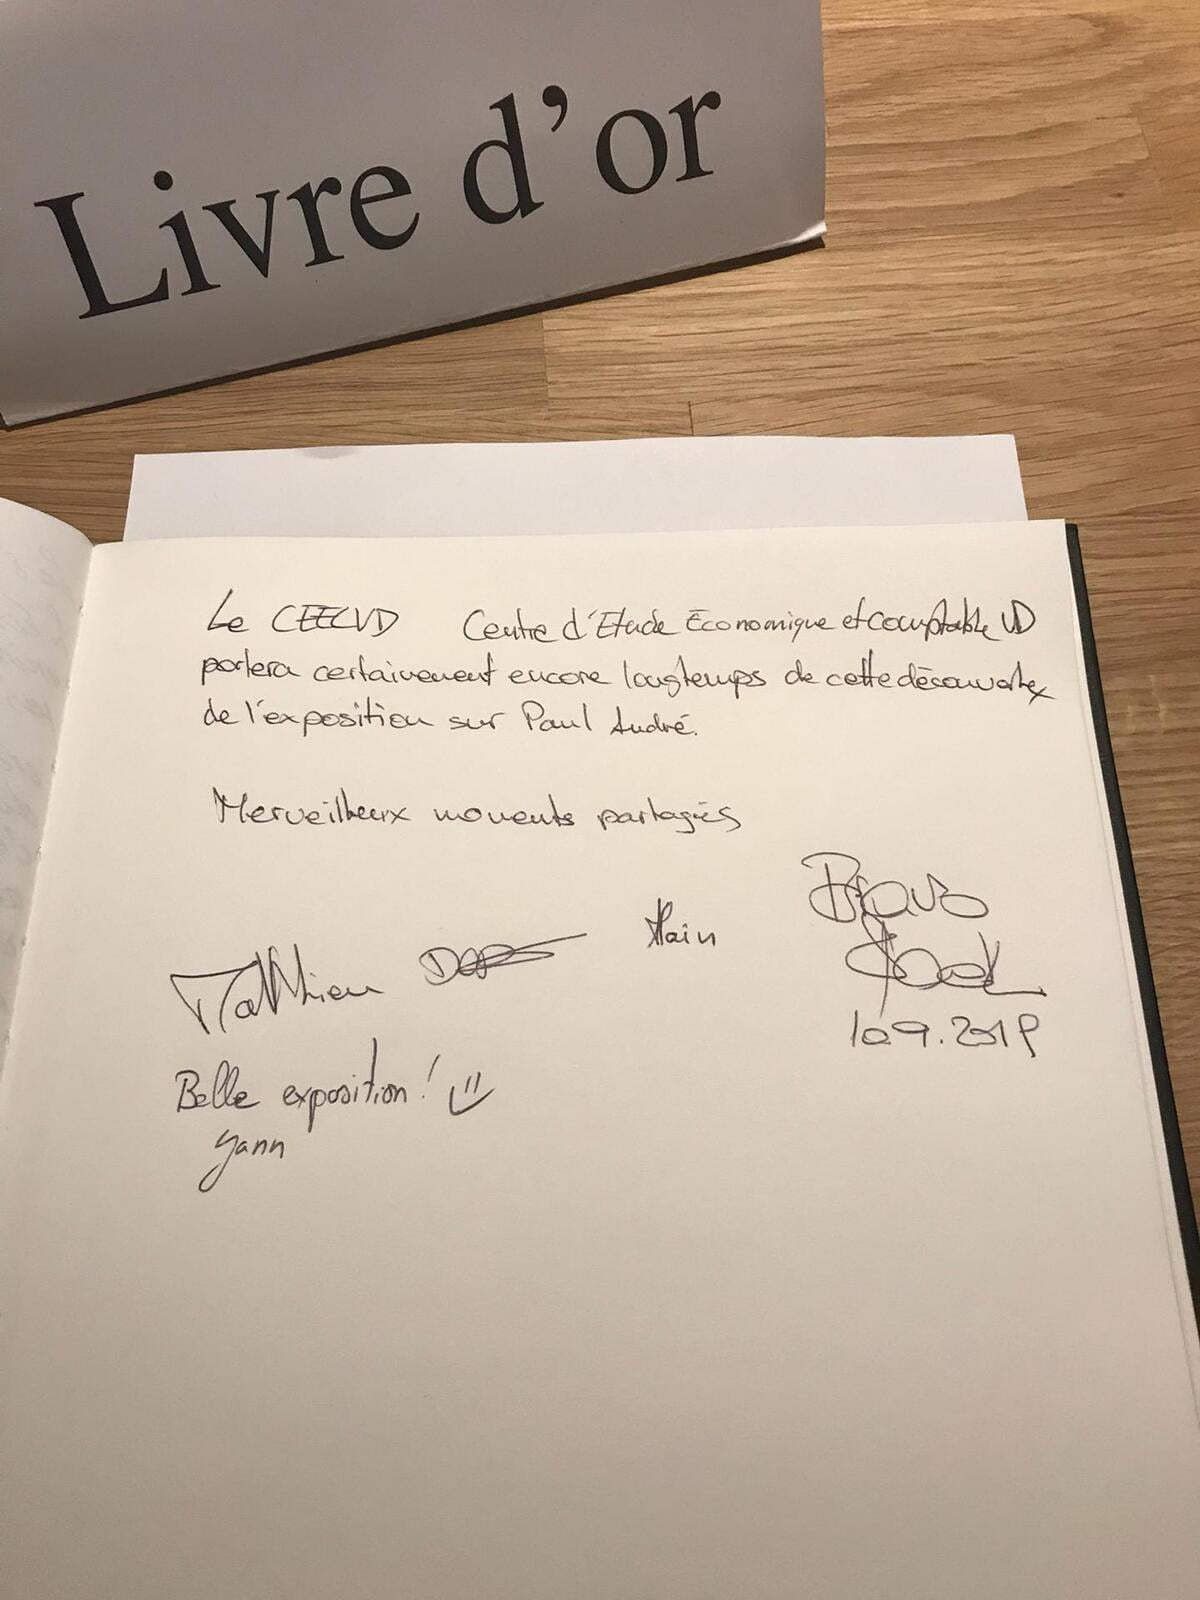 Livre d'or
Le CEECVD Centre d'Etude Économique et comptable VD
portera certainement encore longtemps de cette découverte
de l'exposition sur Paul André.
Merveilleux moments partagés
Bravo
Alain
Matthieu
10.9.2019
Belle exposition!
Yann